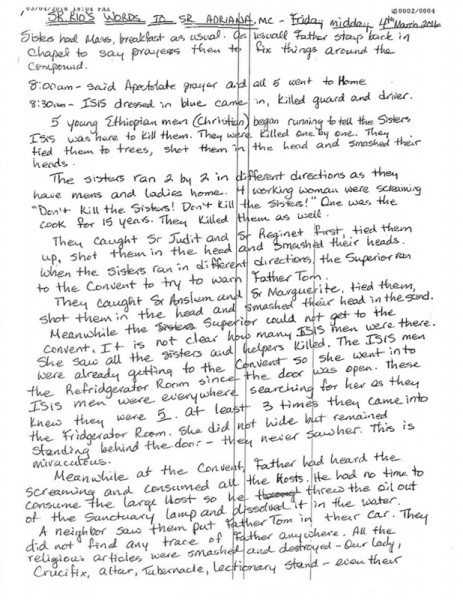 03/04/2016 18:04 FAX 0002/0004
SR. RIO'S WORDS TO SR ADRIANA, MC - Friday midday 4th March 2016
Sisters had Mass, breakfast as usual. As usuall Father stays back in
Chapel to say prayers then to fix things around the
Compound.
8:00am - said Apostolate prayer and all 5 went to Home
8:30am - ISIS dressed in blue came in, killed guard and driver.
5 young Ethiopian men (Christian) began running to tell the Sisters
ISIS was here to kill them. They were killed one by one. They
tied them to trees, shot them in the head and smashed their
heads.
The sisters ran 2 by 2 in different directions as they
have mens and ladies home. 4 working woman were screaming
"Don't kill the Sisters! Don't kill the Sisters!" One was the
cook for 15 years. They killed them as well.
They caught Sr Judit and Sr Reginet first, tied them
up, shot them in the head and smashed their heads.
When the Sisters ran in different directions, the Superior ran
to the Convent to try to warn Father Tom.
They caught Sr Anslum and Sr Marguerite, tied them,
shot them in the head and smashed their head in the sand.
Meanwhile the Superior could not get to the
convent. It is not clear how many ISIS men were there.
She saw all the sisters and helpers killed. The ISIS men
were already getting to the Convent so she went into
the Refridgerator Room since the door was open. These
ISIS men were everywhere searching for her as they
knew they were 5. At least 3 times they came into
the Fridgerator Room. She did not hide but remained
standing behind the door - they never saw her. This is
miraculous.
Meanwhile at the Convent, Father had heard the
screaming and consumed all the Hosts. He had no time to
consume the large Host so he threw the oil out
of the Sanctuary lamp and dissolved it in the water.
A neighbor saw them put Father Tom in their car. They
did not find any trace of Father anywhere. All the
religious articles were smashed and destroyed - Our Lady,
Crucifix, altar, Tabernacle, lectionary stand - even their